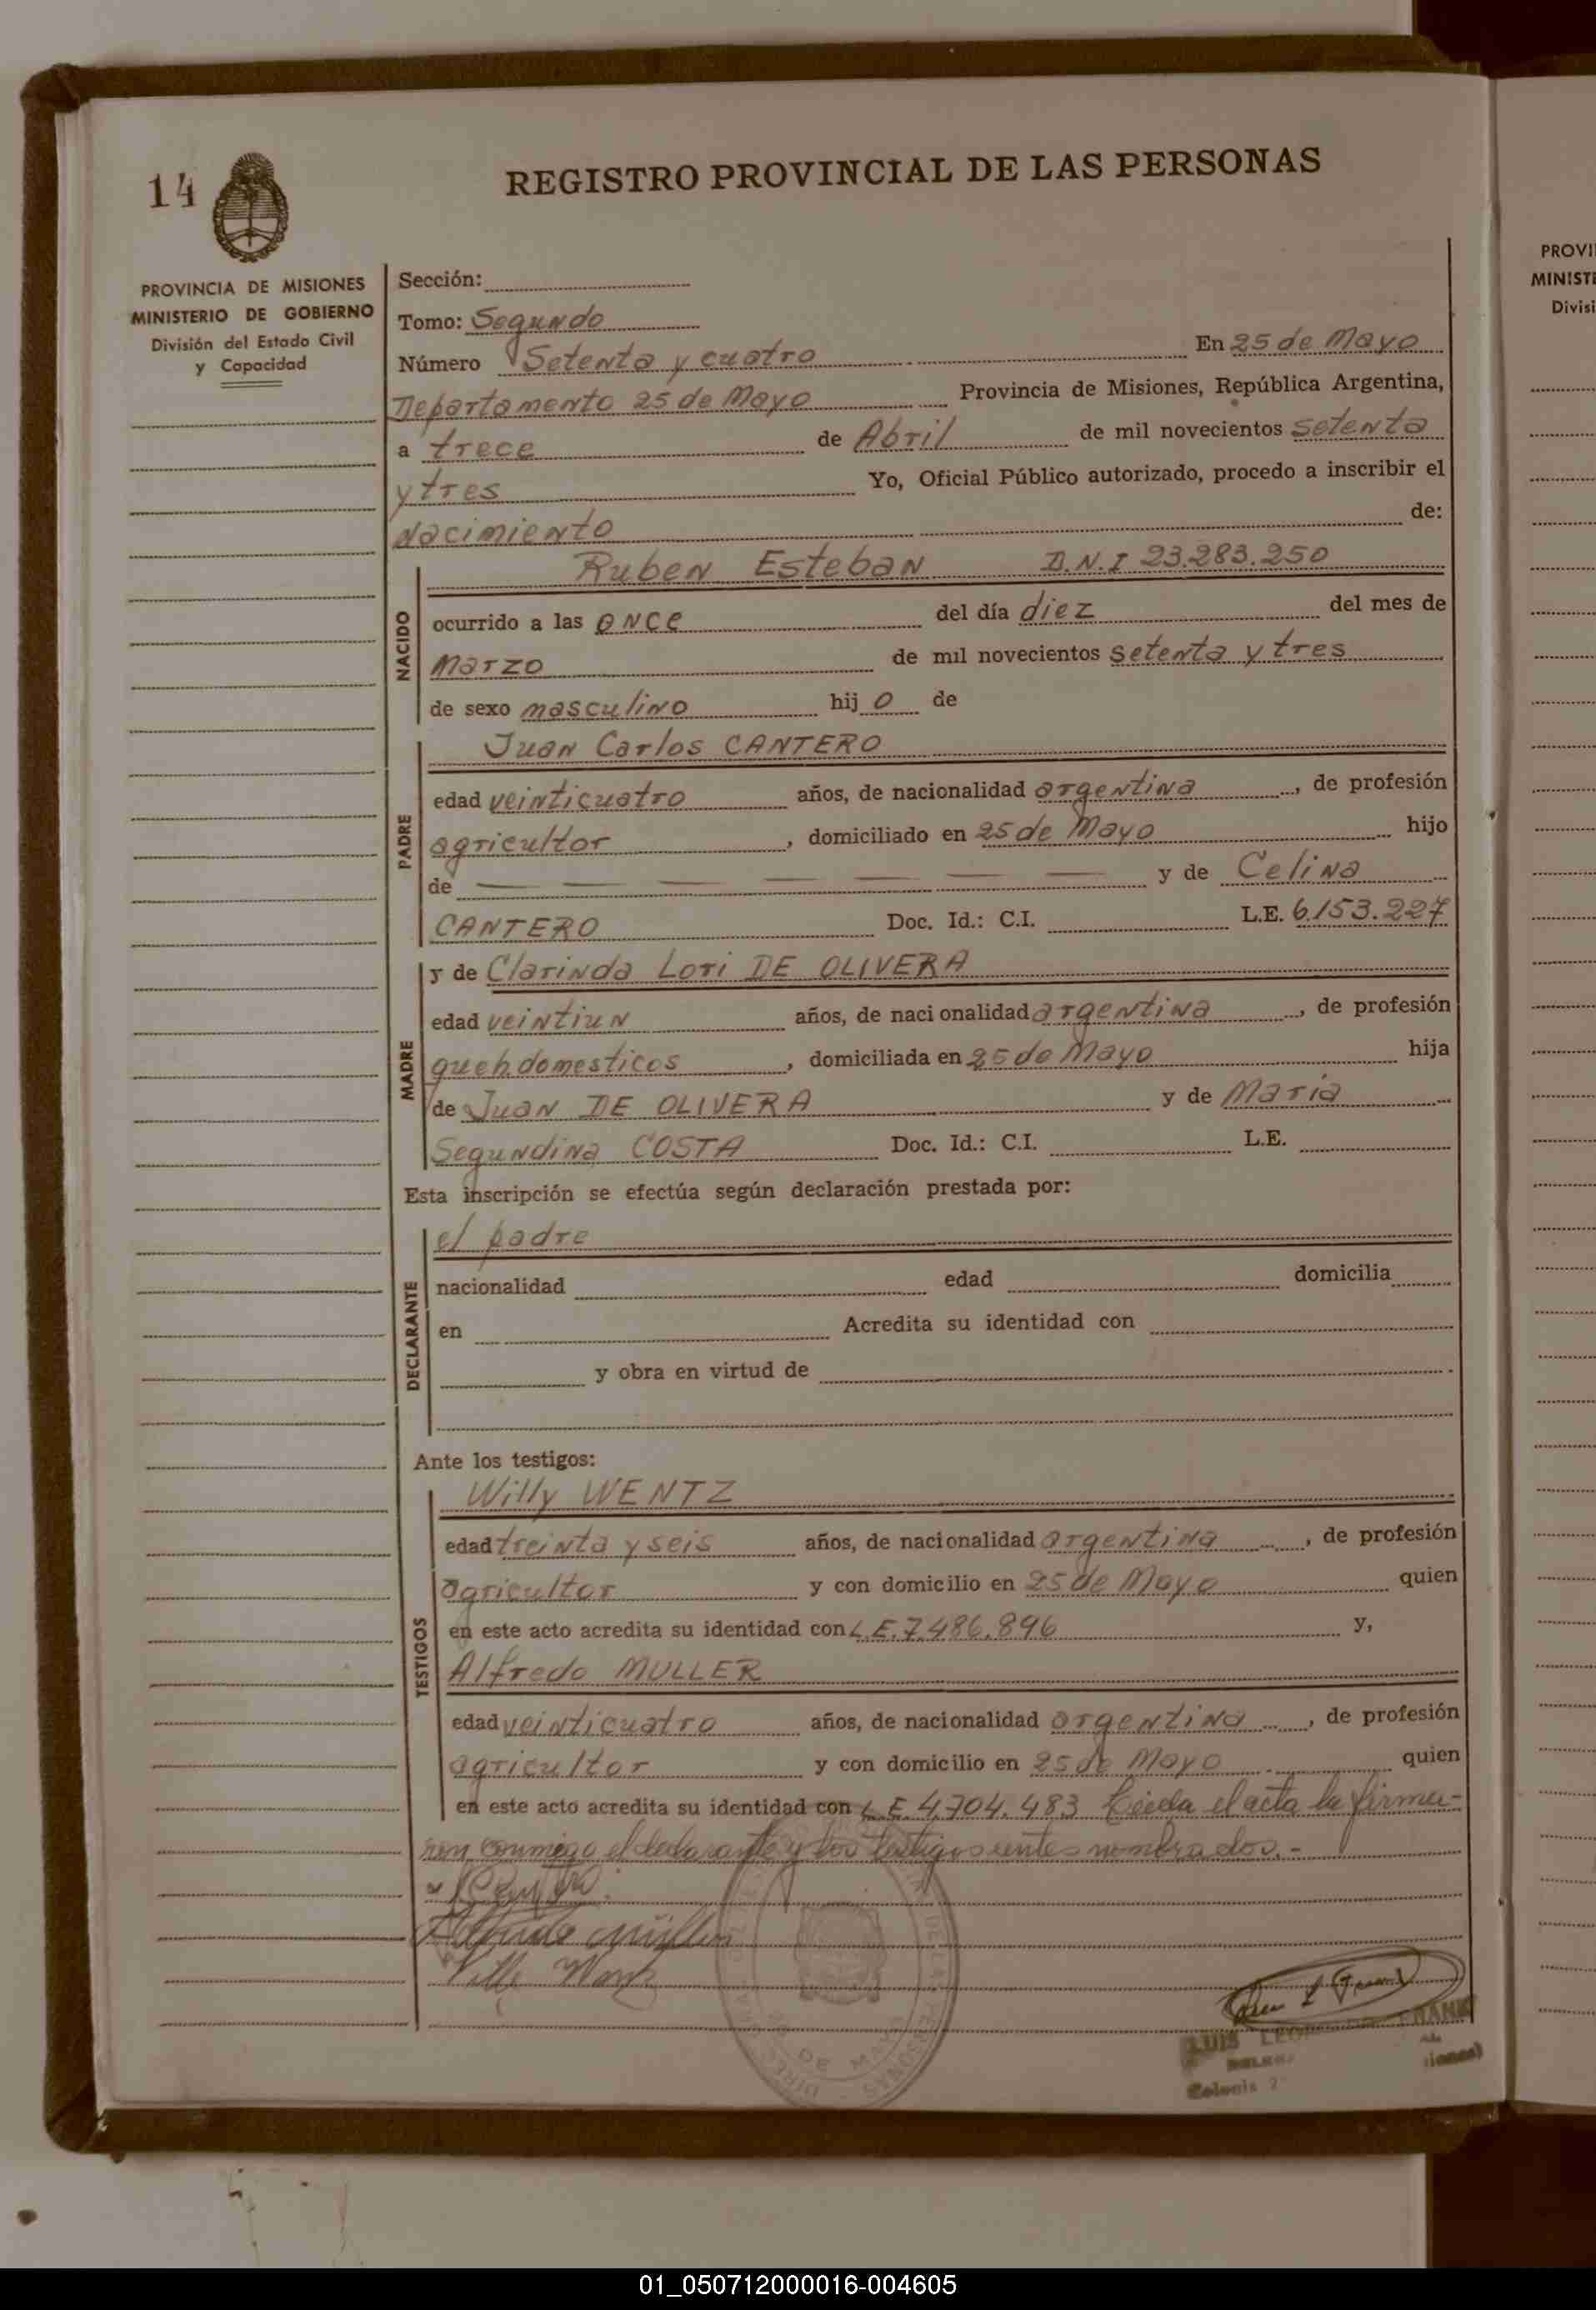 14
REGISTRO PROVINCIAL DE LAS PERSONAS
PROVINCIA DE MISIONES
MINISTERIO DE GOBIERNO
División del Estado Civil
y Capacidad
Sección:
Tomo: Segundo
Número Setenta y cuatro En 25 de Mayo
Departamento 25 de Mayo Provincia de Misiones, República Argentina,
a trece de Abril de mil novecientos setenta
y tres Yo, Oficial Público autorizado, procedo a inscribir el
Nacimiento de:
NACIDO
Ruben Esteban D.N.I 23.283.250
ocurrido a las once del día diez del mes de
Marzo de mil novecientos setenta y tres
de sexo masculino hijo de
PADRE
Juan Carlos CANTERO
edad veinticuatro años, de nacionalidad argentina, de profesión
agricultor, domiciliado en 25 de Mayo hijo
de — — — — — — — y de Celina
CANTERO Doc. Id.: C.I. L.E. 6.153.227
MADRE
y de Clarinda Lori DE OLIVERA
edad veintiun años, de naci onalidad argentina, de profesión
queh. domesticos, domiciliada en 25 de Mayo hija
de Juan DE OLIVERA y de Maria
Segundina COSTA Doc. Id.: C.I. L.E.
Esta inscripción se efectúa según declaración prestada por:
DECLARANTE
el padre
nacionalidad edad domicilia
en Acredita su identidad con
y obra en virtud de
Ante los testigos:
TESTIGOS
Willy WENTZ
edad treinta y seis años, de nacionalidad argentina, de profesión
agricultor y con domicilio en 25 de Mayo quien
en este acto acredita su identidad con L.E. 7.486.896 y,
Alfredo MULLER
edad veinticuatro años, de nacionalidad argentina, de profesión
agricultor y con domicilio en 25 de Mayo quien
en este acto acredita su identidad con L E 4.704.483 Leida el acta la firma-
ron conmigo el declarante y los testigos antes nombrados.-
DE MAYO
LUIS
Colonia 2
PROVI
MINISTE
Divisi
01_050712000016-004605